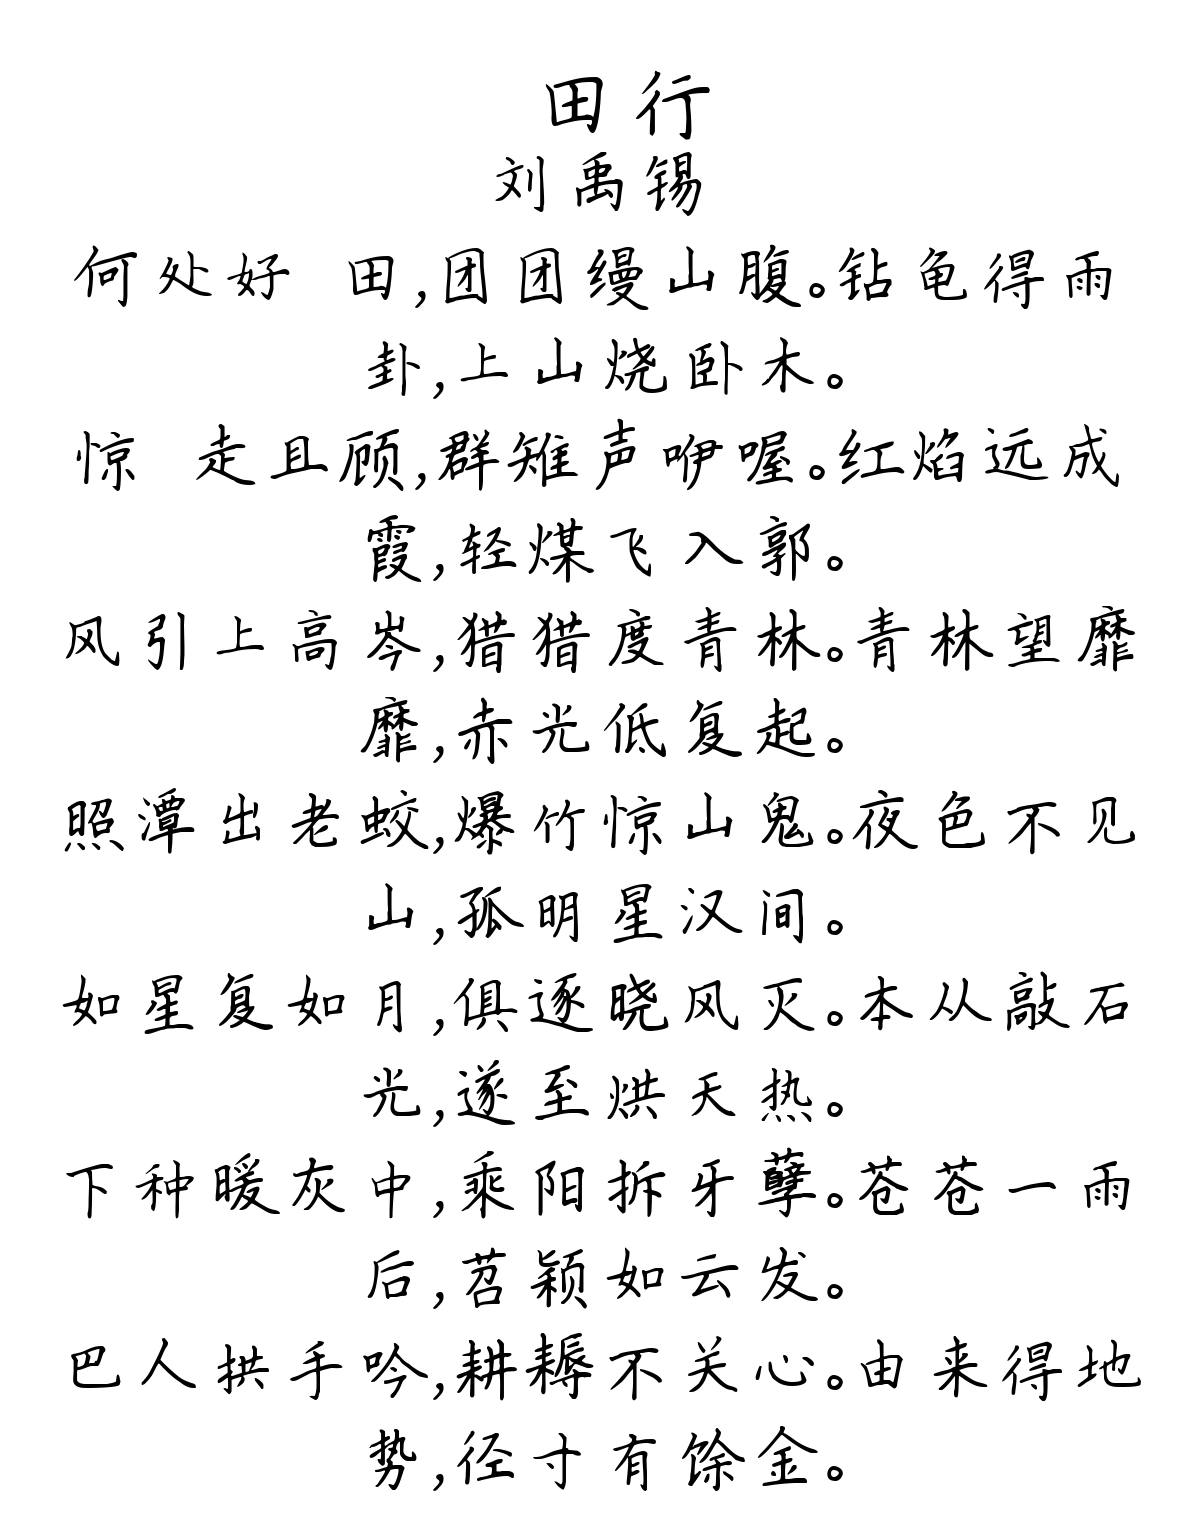 田行
刘禹锡
何处好 田,团团缦山腹。钻龟得雨
卦,上山烧卧木。
惊 走且顾,群雉声咿喔。红焰远成
霞,轻煤飞入郭。
风引上高岑,猎猎度青林。青林望靡
靡,赤光低复起。
照潭出老蛟,爆竹惊山鬼。夜色不见
山,孤明星汉间。
如星复如月,俱逐晓风灭。本从敲石
光,遂至烘天热。
下种暖灰中,乘阳拆牙孽。苍苍一雨
后,苕颖如云发。
巴人拱手吟,耕耨不关心。由来得地
势,径寸有馀金。